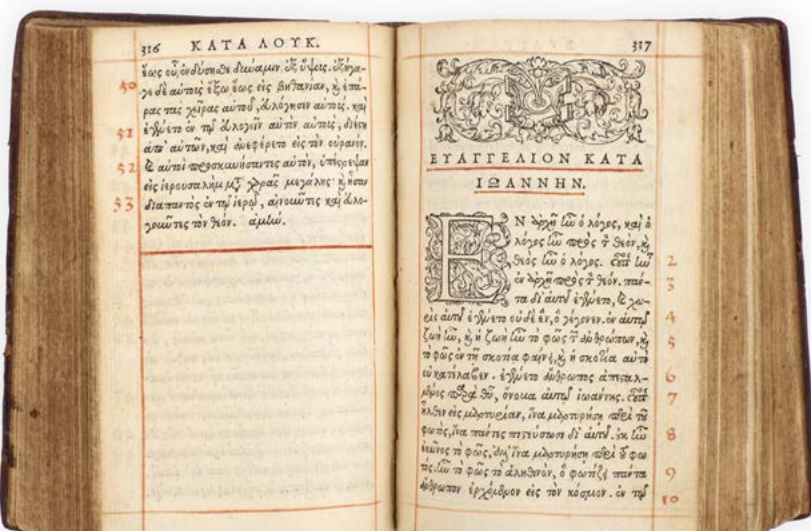 316 ΚΑΤΑ ΛΟΥΚ.
ἕως οὗ ἐνδύσησθε δύναμιν ἐξ ὕψους. ἐξήγα-
50 γε δὲ αὐτοὺς ἔξω ἕως εἰς βηθανίαν, καὶ ἐπά-
ρας τὰς χεῖρας αὐτοῦ, εὐλόγησεν αὐτούς. καὶ
51 ἐγένετο ἐν τῷ εὐλογεῖν αὐτὸν αὐτούς, διέστη
ἀπ' αὐτῶν, καὶ ἀνεφέρετο εἰς τὸν οὐρανόν.
52 καὶ αὐτοὶ προσκυνήσαντες αὐτὸν, ὑπέστρεψαν
εἰς ἱερουσαλὴμ μετὰ χαρᾶς μεγάλης· καὶ ἦσαν
53 διαπαντὸς ἐν τῷ ἱερῷ, αἰνοῦντες καὶ εὐλο-
γοῦντες τὸν θεόν. ἀμήν.
317
ΕΥΑΓΓΕΛΙΟΝ ΚΑΤΑ
ΙΩΑΝΝΗΝ.
ΕΝ ἀρχῇ ἦν ὁ λόγος, καὶ ὁ
λόγος ἦν πρὸς τὸν θεόν, καὶ
θεὸς ἦν ὁ λόγος. οὗτος ἦν 2
ἐν ἀρχῇ πρὸς τὸν θεόν. πάν- 3
τα δι' αὐτοῦ ἐγένετο, καὶ χω-
ρὶς αὐτοῦ ἐγένετο οὐδὲ ἕν, ὃ γέγονεν. ἐν αὐτῷ 4
ζωὴ ἦν, καὶ ἡ ζωὴ ἦν τὸ φῶς τῶν ἀνθρώπων, καὶ 5
τὸ φῶς ἐν τῇ σκοτίᾳ φαίνει, καὶ ἡ σκοτία αὐτὸ
οὐ κατέλαβεν. ἐγένετο ἄνθρωπος ἀπεσταλ- 6
μένος παρὰ θεοῦ, ὄνομα αὐτῷ ἰωάννης. οὗτος 7
ἦλθεν εἰς μαρτυρίαν, ἵνα μαρτυρήσῃ περὶ τοῦ
φωτός, ἵνα πάντες πιστεύσωσι δι' αὐτοῦ. οὐκ ἦν 8
ἐκεῖνος τὸ φῶς, ἀλλ' ἵνα μαρτυρήσῃ περὶ τοῦ φω
τός. ἦν τὸ φῶς τὸ ἀληθινόν, ὃ φωτίζει πάντα 9
ἄνθρωπον ἐρχόμενον εἰς τὸν κόσμον. ἐν τῷ 10